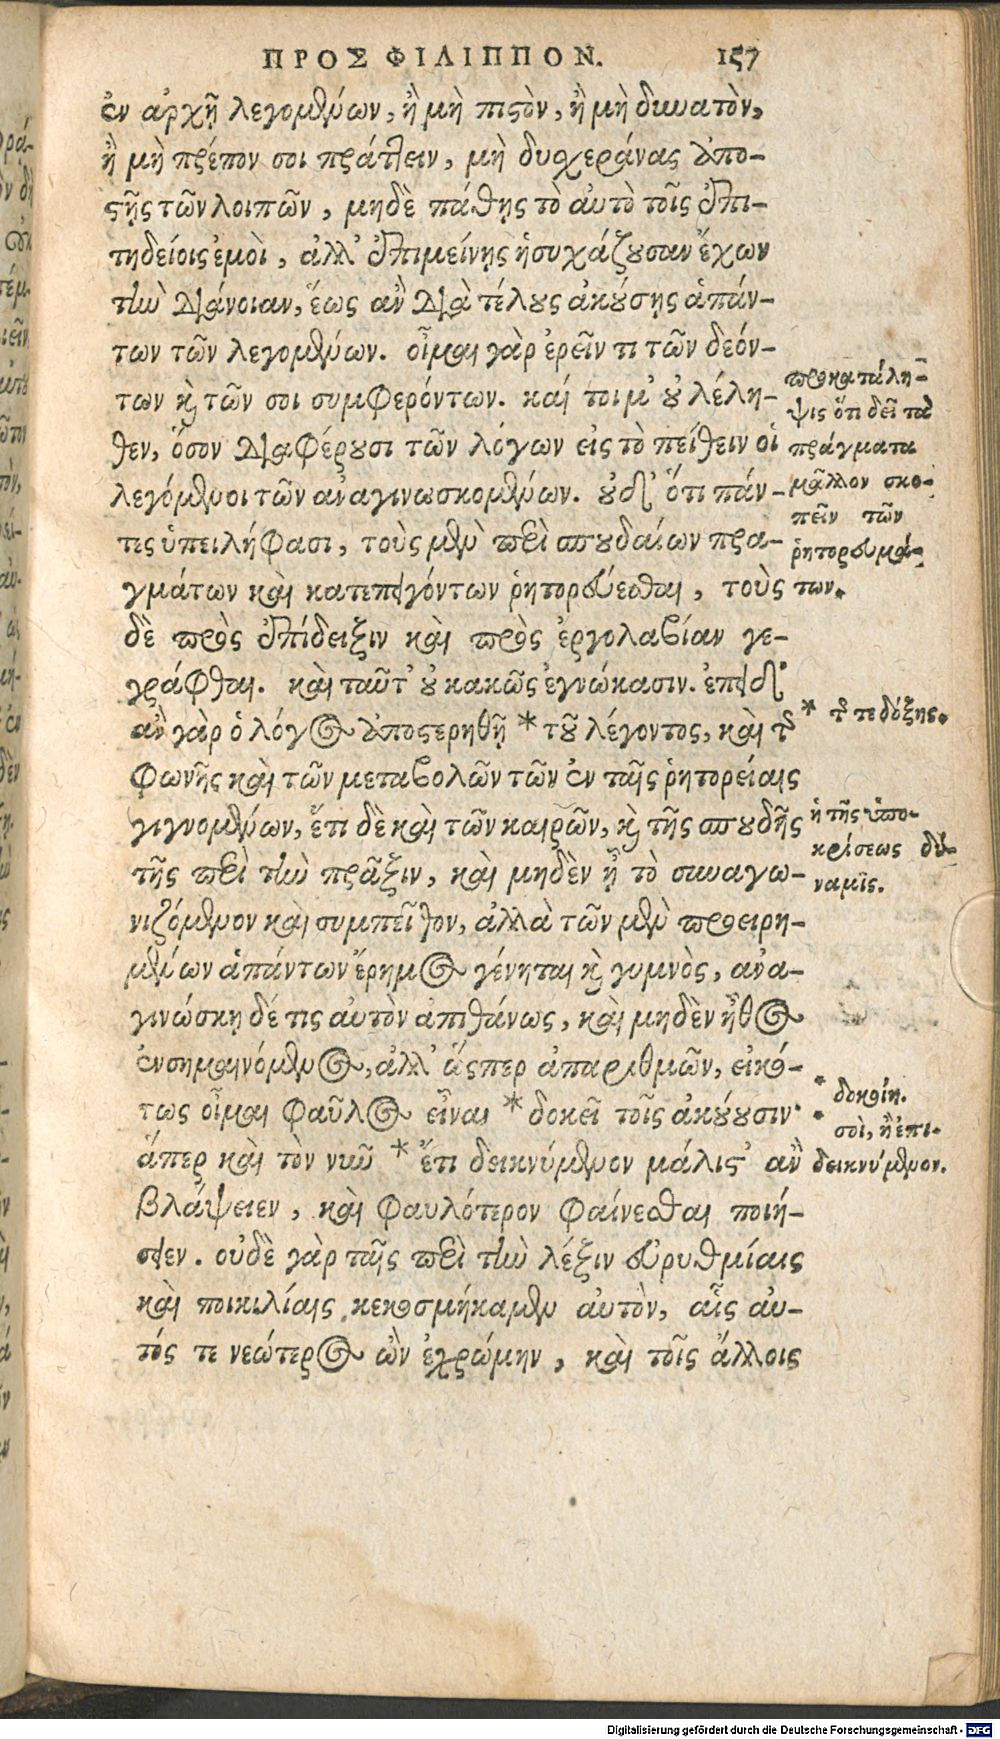 ΠΡΟΣ ΦΙΛΙΠΠΟΝ. 157
ἐν ἀρχῇ λεγομένων, ἢ μὴ πιστὸν, ἢ μὴ δυνατὸν,
ἢ μὴ πρέπον σοι πράττειν, μὴ δυσχεράνας ἀπο-
στῇς τῶν λοιπῶν, μηδὲ πάθῃς τὸ αὐτὸ τοῖς ἐπι-
τηδείοις ἐμοὶ, ἀλλ' ἐπιμείνῃς ἡσυχάζουσαν ἔχων
τὴν διάνοιαν, ἕως ἂν διὰ τέλους ἀκούσῃς ἁπάν-
των τῶν λεγομένων. οἶμαι γὰρ ἐρεῖν τι τῶν δεόν-
των καὶ τῶν σοι συμφερόντων. καί τοι μ' οὐ λέλη-
θεν, ὅσον διαφέρουσι τῶν λόγων εἰς τὸ πείθειν οἱ
λεγόμενοι τῶν ἀναγινωσκομένων. οὐδ' ὅτι πάν-
τες ὑπειλήφασι, τοὺς μὲν περὶ σπουδαίων πρα-
γμάτων καὶ κατεπειγόντων ῥητορεύεσθαι, τοὺς
δὲ πρὸς ἐπίδειξιν καὶ πρὸς ἐργολαβίαν γε-
γράφθαι. καὶ ταῦτ' οὐ κακῶς ἐγνώκασιν. ἐπειδ'
ἂν γὰρ ὁ λόγος ἀποστερηθῇ * τοῦ λέγοντος, καὶ τῆς
φωνῆς καὶ τῶν μεταβολῶν τῶν ἐν ταῖς ῥητορείαις
γιγνομένων, ἔτι δὲ καὶ τῶν καιρῶν, καὶ τῆς σπουδῆς
τῆς περὶ τὴν πρᾶξιν, καὶ μηδὲν ᾖ τὸ συναγω-
νιζόμενον καὶ συμπεῖθον, ἀλλὰ τῶν μὲν προειρη-
μένων ἁπάντων ἔρημος γένηται καὶ γυμνὸς, ἀνα-
γινώσκῃ δέ τις αὐτὸν ἀπιθάνως, καὶ μηδὲν ἦθος
ἐνσημαινόμενος, ἀλλ' ὥσπερ ἀπαριθμῶν, εἰκό-
τως οἶμαι φαῦλος εἶναι * δοκεῖ τοῖς ἀκούουσιν·
ἅπερ καὶ τὸν νῦν * ἔτι δεικνύμενον μάλιστ' ἂν
βλάψειεν, καὶ φαυλότερον φαίνεσθαι ποιή-
σειεν. οὐδὲ γὰρ ταῖς περὶ τὴν λέξιν εὐρυθμίαις
καὶ ποικιλίαις κεκοσμήκαμεν αὐτὸν, αἷς αὐ-
τός τε νεώτερος ὢν ἐχρώμην, καὶ τοῖς ἄλλοις
προκατάλη-
ψις ὅτι δεῖ τὰ
πράγματα
μᾶλλον σκο-
πεῖν τῶν
ῥητορευμά-
των.
* τῆς τε δόξης.
ἡ τῆς ὑπο-
κρίσεως δύ-
ναμις.
* δοκοίη.
* σοὶ, ἢ ἐπι-
δεικνύμενον.
Digitalisierung gefördert durch die Deutsche Forschungsgemeinschaft - DFG